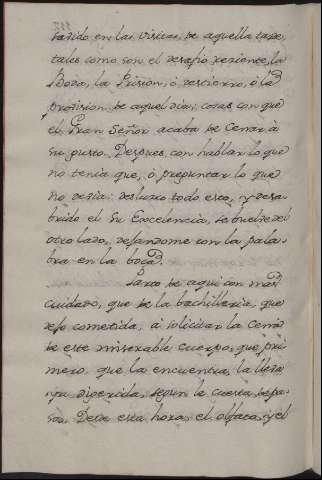 sabido en las visitas de aquella tarde,
tales como son el desafio reciente, la
Boda, la Prision, ò destierro, ò la
provision de aquel dia; cosas con que
el Gran Señor acaba de Cenar à
su gusto. Despues, con hablar lo que
no tenia que, ò preguntar lo que
no devia: desluze todo esto, y desa-
brido el Su Excelencia, se buelve del
otro lado, dexandome con la pala-
bra en la boca.
Parto de aqui con mas
cuidado, que de la bachilleria, que
dexo cometida, à solicitar la Cena
de este miserable cuerpo, que pri-
mero, que la encuentra, la lleva
ya digerida, segun le cuesta de pa-
sos. Desta esta hora, el olfato, y el